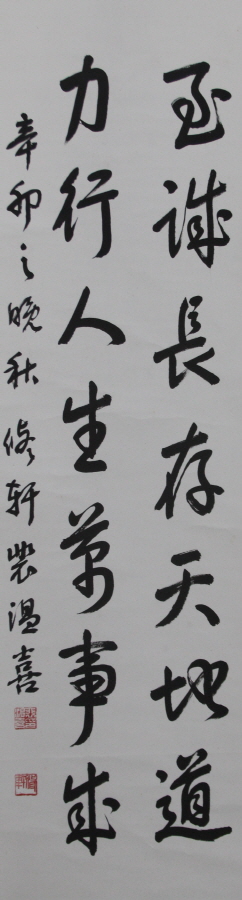 至誠長存天地道
力行人生萬事成
辛卯之晚秋 修軒 裴温喜